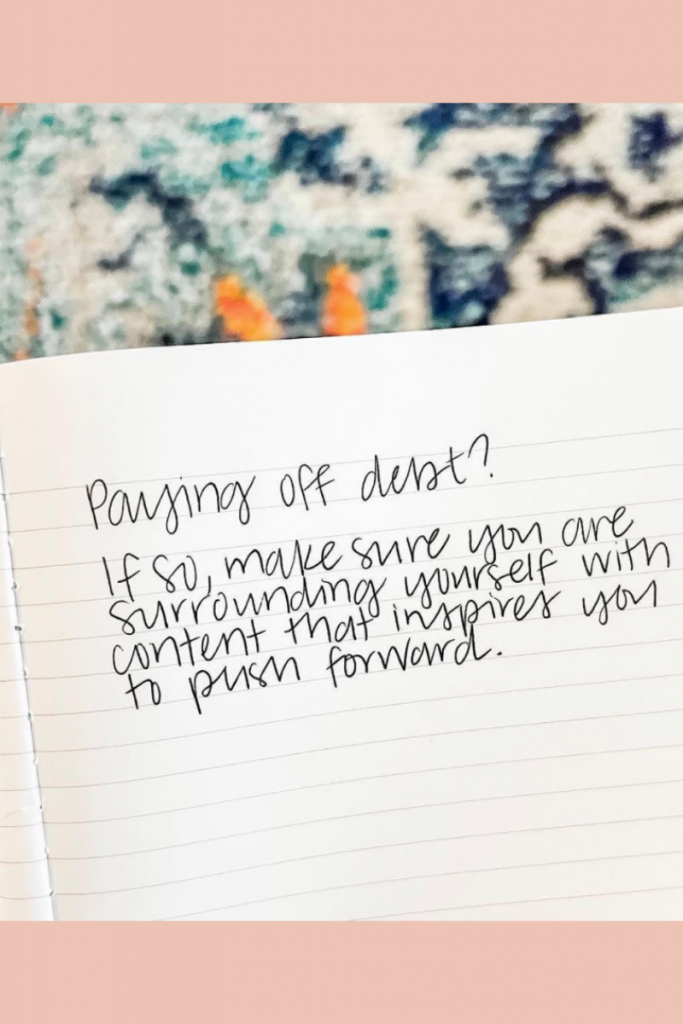 Paying off debt?
If so, make sure you are
surrounding yourself with
content that inspires you
to push forward.